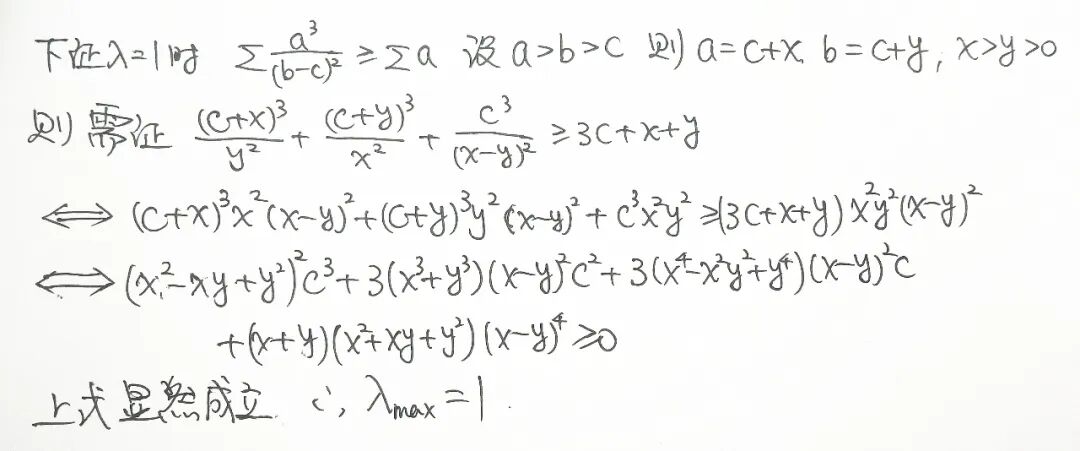 下证λ=1时 ∑a³/(b-c)² ≥ ∑a 设 a>b>c 则 a=c+x, b=c+y, x>y>0
则需证 (c+x)³/y² + (c+y)³/x² + c³/(x-y)² ≥ 3c+x+y
⟺ (c+x)³x²(x-y)²+(c+y)³y²(x-y)²+c³x²y² ≥(3c+x+y)x²y²(x-y)²
⟺ (x²-xy+y²)²c³+3(x³+y³)(x-y)²c²+3(x⁴-x²y²+y⁴)(x-y)²c
+(x+y)(x²+xy+y²)(x-y)⁴≥0
上式显然成立 ∴, λmax=1.